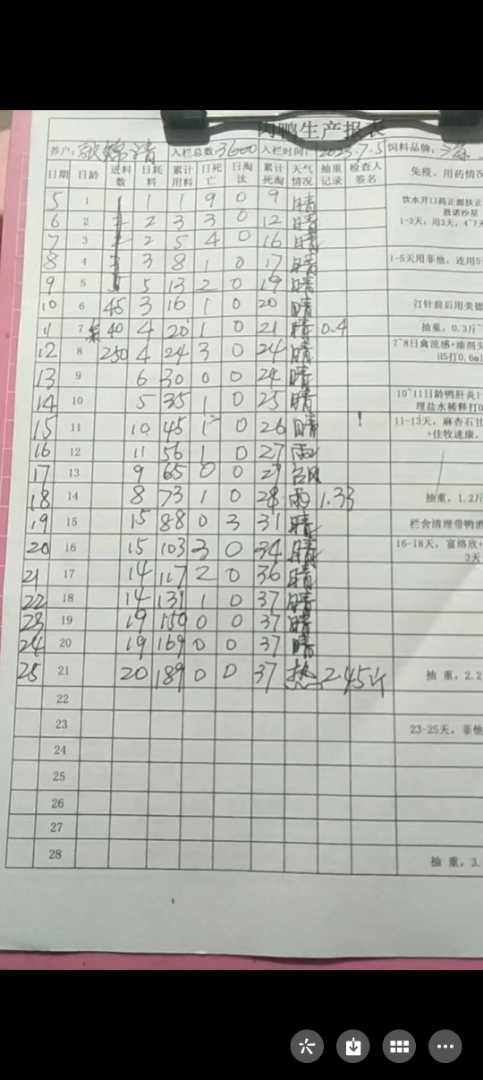 肉鸭生产报表
养户: 入栏总数:3600 入栏时间: 2023.7.5 饲料品牌:
日期 日龄 送料数 日耗料 累计用料 日死亡 日淘汰 累计死淘 天气情况 抽重记录 检查人签名 免疫、用药情况
5 1 1 1 9 0 9 晴 饮水开口药正源扶正
6 2 2 3 3 0 12 晴 1-3天,用3天,4~7天
7 3 2 5 4 0 16 晴
8 4 3 8 1 0 17 晴 1-5天用菲他,连用5
9 5 5 13 2 0 19 晴
10 6 45 3 16 1 0 20 晴 打针前后用美德
11 7 40 4 20 1 0 21 晴 0.4 抽重,0.3斤
12 8 250 4 24 3 0 24 晴 7~8日禽流感+
H5打0.6ml
13 9 6 30 0 0 24 晴
14 10 5 35 1 0 25 晴 10~11日龄鸭肝炎1
理盐水稀释打0
15 11 10 45 1 0 26 晴 11-13天,麻杏石甘
+佳牧速康,
16 12 11 56 1 0 27 雨
17 13 9 65 0 0 27 台风
18 14 8 73 1 0 28 雨 1.33 抽重,1.2斤
19 15 15 88 0 3 31 晴 栏舍清理带鸭消
20 16 15 103 3 0 34 晴 16-18天,富络欣+
3天
21 17 14 117 2 0 36 晴
22 18 14 131 1 0 37 晴
23 19 19 150 0 0 37 晴
24 20 19 169 0 0 37 晴
25 21 20 189 0 0 37 热 2.45斤 抽重,2.2
22
23 23-25天,菲他
24
25
26
27
28 抽重,3.